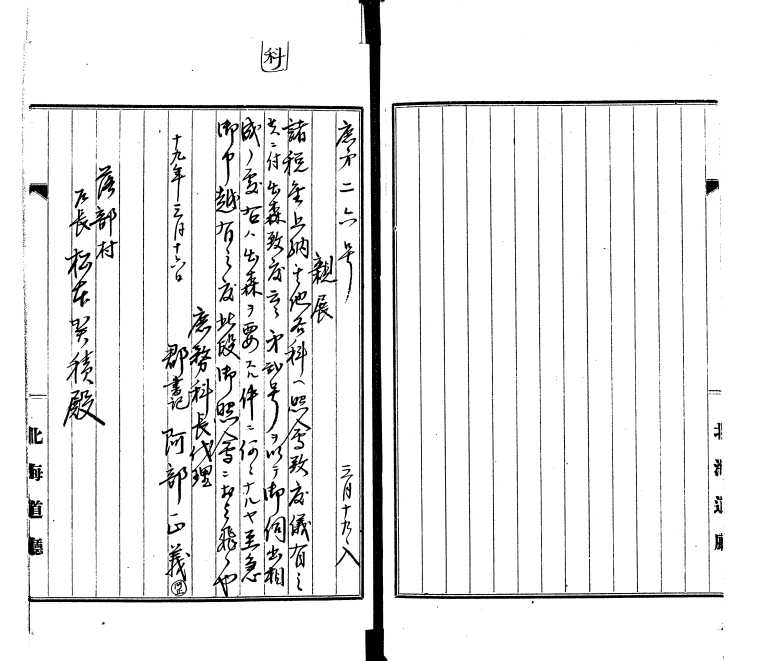 科
庶第二六号 三月十九日入
親展
諸税金上納其他各科へ照会致度儀有之
ニ付出森致度云々第 号ヲ以テ御伺出相
成ノ処右ハ出森ヲ要スル件ニ何々ナルヤ至急
御申越有之度此段御照会ニ及之 也
庶務科長代理
郡書記 阿部正義
十九年三月十六日
落部村
戸長 松本 積殿
北海道廳
北海道廳